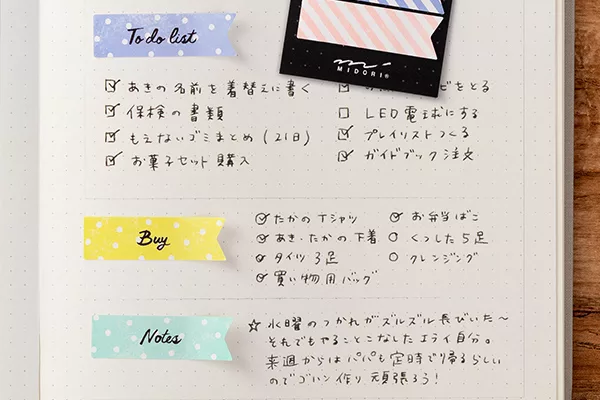 To do list
MIDORI®
あきの名前を着替えに書く
保検の書類
もえないゴミまとめ (21日)
お菓子セット購入
ビをとる
LED電球にする
プレイリストつくる
ガイドブック注文
Buy
たかのTシャツ
あき・たかの下着
タイツ3足
買い物用バッグ
お弁当ばこ
くつした5足
クレンジング
Notes
☆ 水曜のつかれがズルズル長びいた〜
それでもやることこなしたエライ自分。
来週からはパパも定時で帰るらしい
のでゴハン作り頑張ろう!